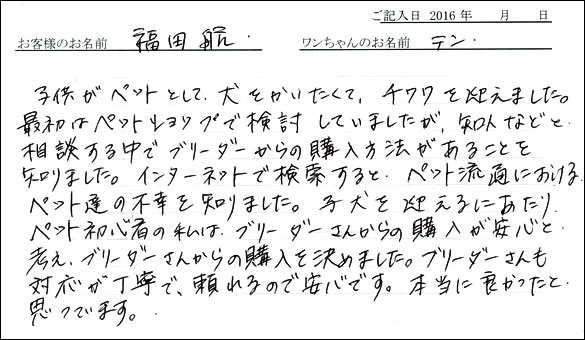 ご記入日 2016年 月 日
お客様のお名前 福田 航. ワンちゃんのお名前 テン.
子供がペットとして、犬をかいたくて、チワワを迎えました。
最初はペットショップで検討していましたが、知人などと
相談する中でブリーダーからの購入方法があることを
知りました。インターネットで検索すると、ペット流通における
ペット達の不幸を知りました。子犬を迎えるにあたり、
ペット初心者の私は、ブリーダーさんからの購入が安心と
考え、ブリーダーさんからの購入を決めました。ブリーダーさんも
対応が丁寧で、頼れるので安心です。本当に良かったと
思ってます。